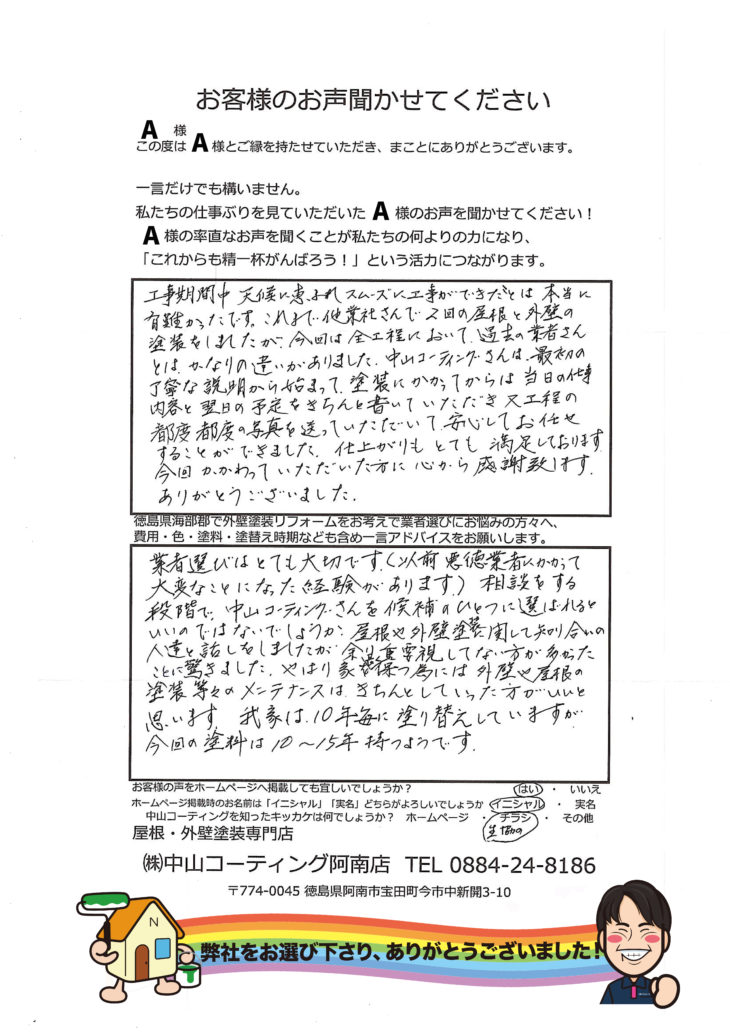 お客様のお声聞かせてください
A 様
この度は A 様とご縁を持たせていただき、まことにありがとうございます。
一言だけでも構いません。
私たちの仕事ぶりを見ていただいた A 様のお声を聞かせてください！
A 様の率直なお声を聞くことが私たちの何よりの力になり、
「これからも精一杯がんばろう！」という活力につながります。
工事期間中 天候に恵まれ スムーズに工事ができたことは 本当に
有難かったです。これまで他業社さんで 2回の屋根と外壁の
塗装をしましたが、今回は全工程において、過去の業者さん
とは、かなりの違いがありました。中山コーティングさんは、最初の
丁寧な説明から始まって、塗装にかかってからは 当日の仕事
内容と翌日の予定をきちんと書いていただき 又工程の
都度都度の写真を送っていただいて、安心してお任せ
することができました。仕上がりも とても 満足しております。
今回かかわっていただいた方に 心から 感謝致します。
ありがとうございました。
徳島県海部郡で外壁塗装リフォームをお考えで業者選びにお悩みの方々へ、
費用・色・塗料・塗替え時期なども含め一言アドバイスをお願いします。
業者選びはとても大切です。(以前 悪徳業者にかかって
大変なことになった経験があります) 相談をする
段階で、中山コーティングさんを候補のひとつに選ばれると
いいのではないでしょうか。屋根や外壁塗装に関して知り合いの
人達と話しをしましたが 余り重要視してない方が多かった
ことに驚きました。やはり家を保つ為には 外壁や屋根の
塗装等々のメンテナンスは、きちんとしていった方がいいと
思います。我家は、10年毎に塗り替えしていますが
今回の塗料は10～15年 持つようです。
お客様の声をホームページへ掲載しても宜しいでしょうか？ はい ・ いいえ
ホームページ掲載時のお名前は「イニシャル」「実名」どちらがよろしいでしょうか イニシャル ・ 実名
中山コーティングを知ったキッカケは何でしょうか？ ホームページ ・ チラシ ・ その他
屋根・外壁塗装専門店
㈱中山コーティング阿南店 TEL 0884-24-8186
〒774-0045 徳島県阿南市宝田町今市中新開3-10
N
弊社をお選び下さり、ありがとうございました！